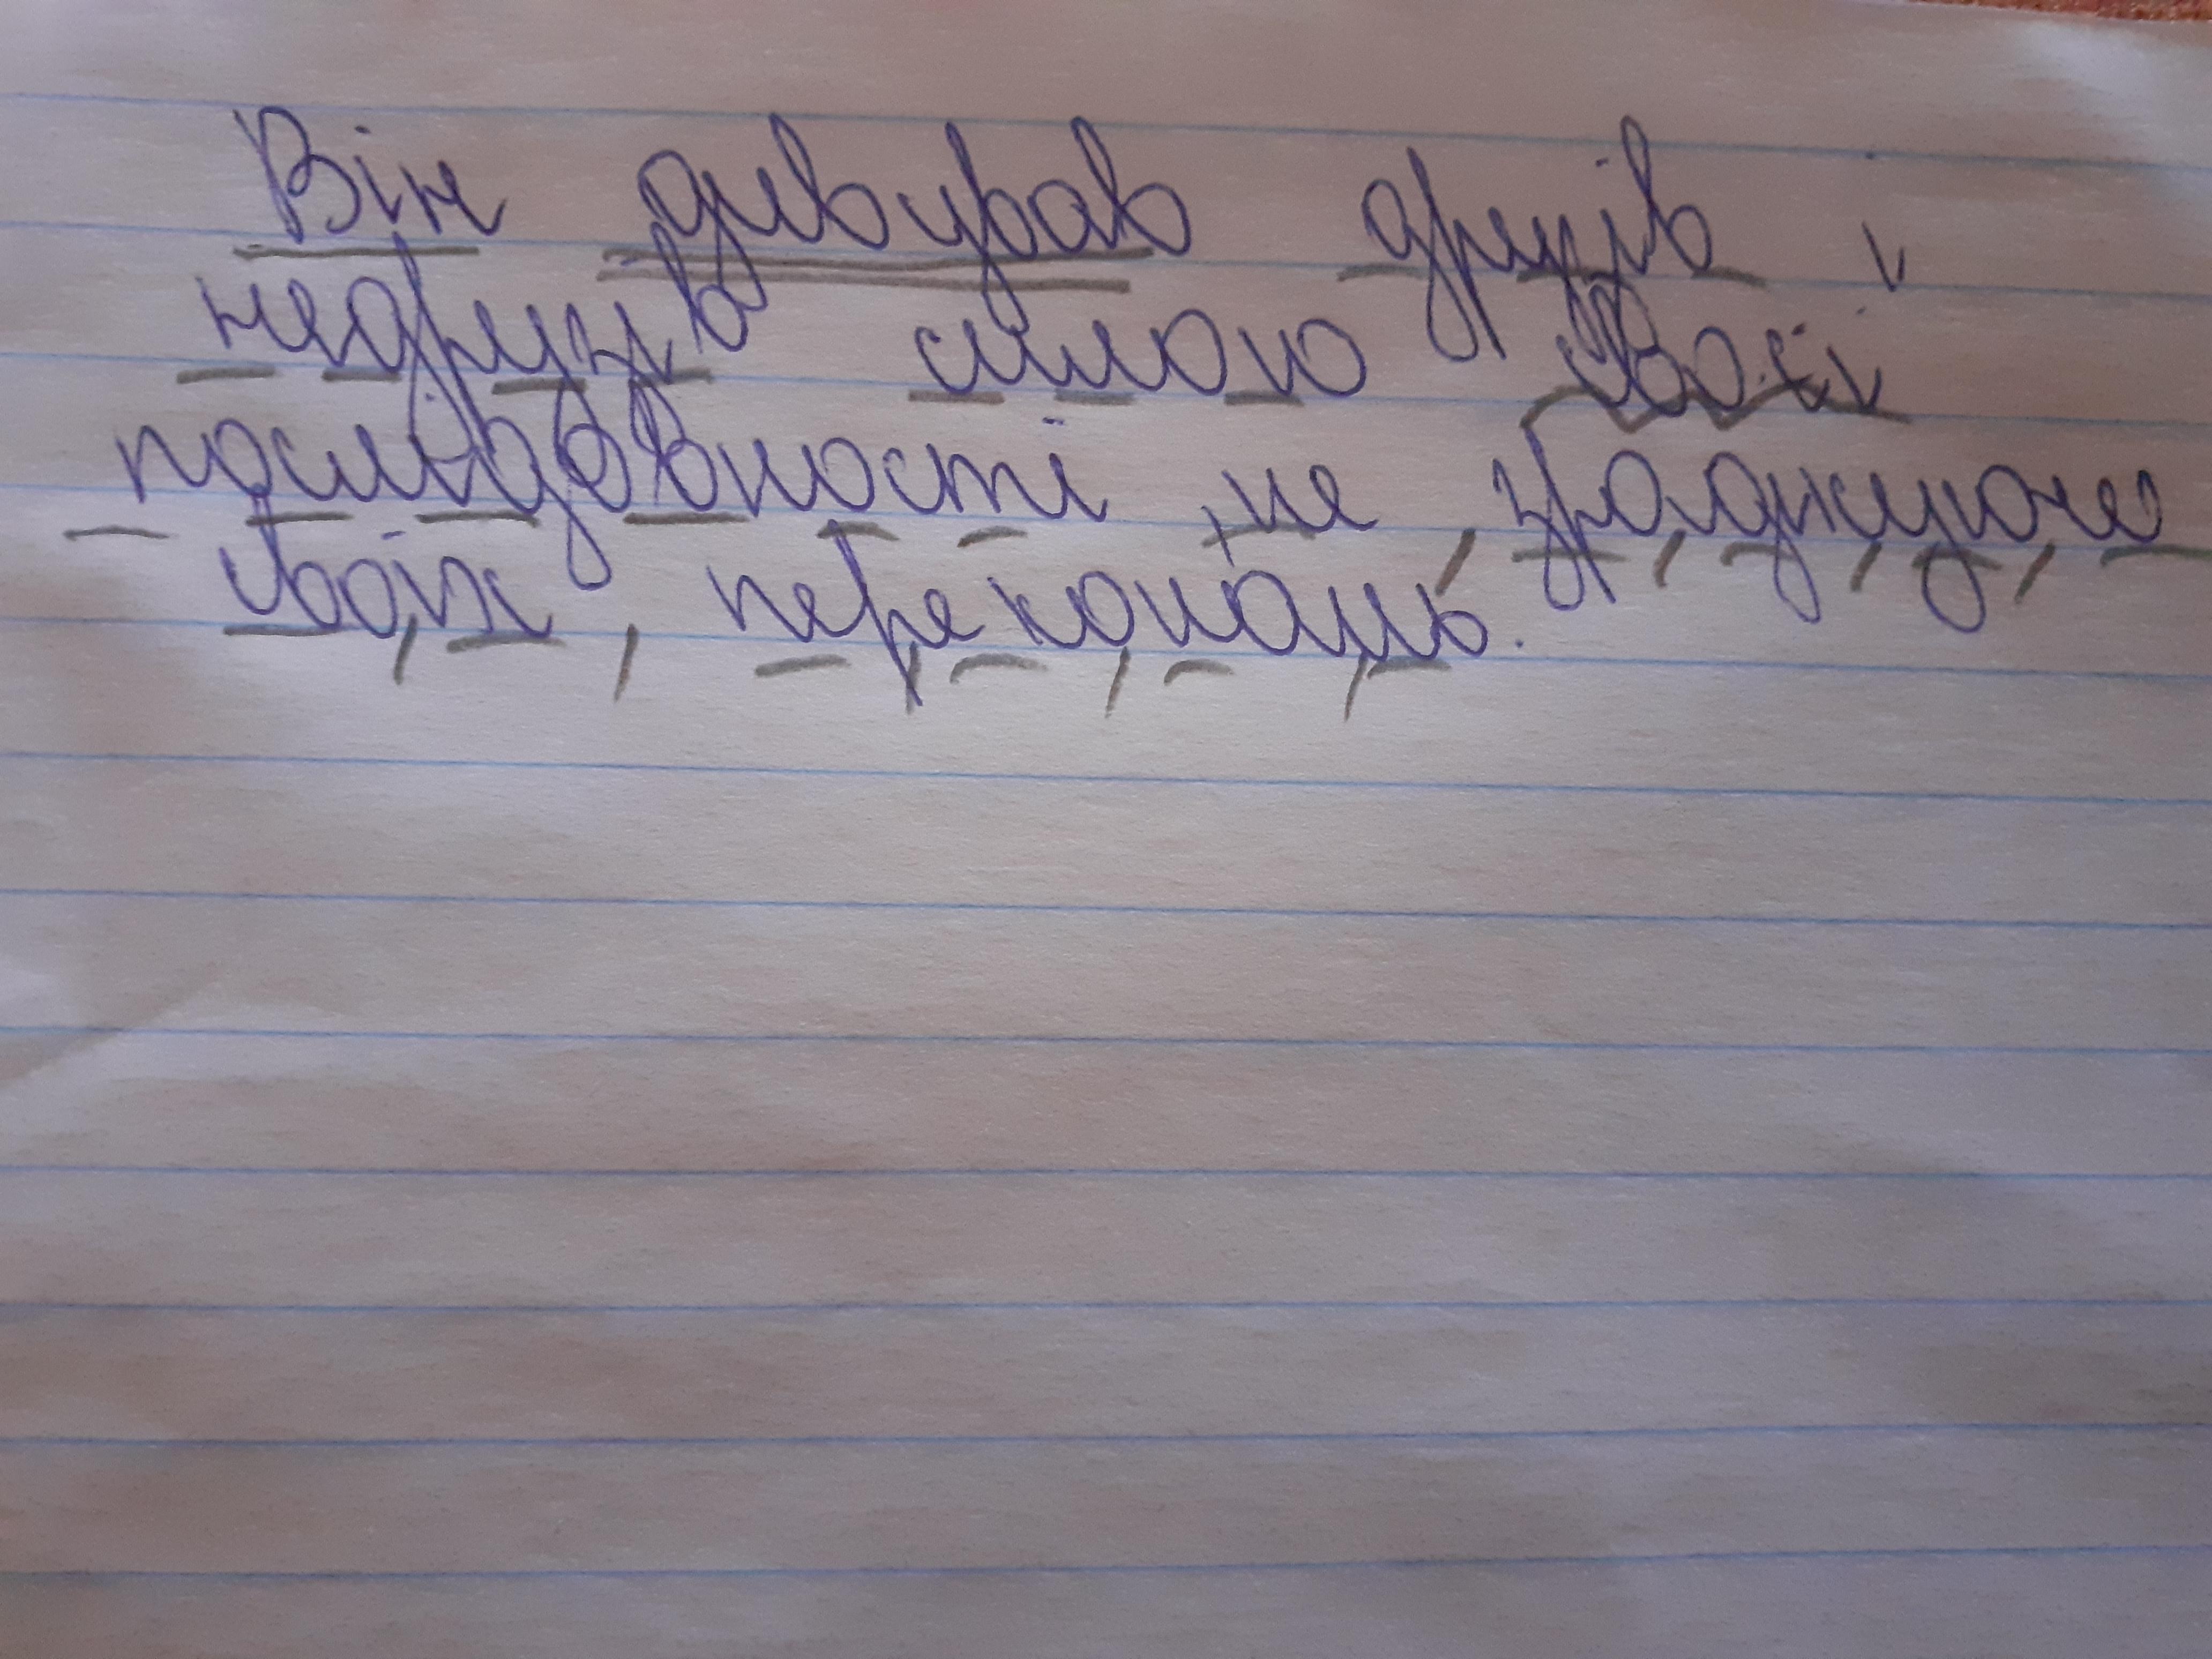 Він дивував друзів і
недрузів силою своєї
послідовності, не зраджуючи
своїх переконань.